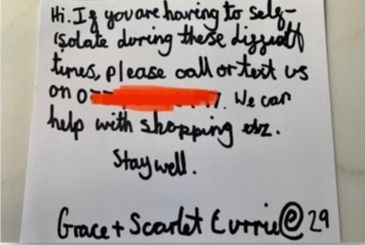 Hi. If you are having to self-
isolate during these difficult
times, please call or text us
on 0 7. We can
help with shopping etc.
Stay well.
Grace + Scarlet Currie @ 29